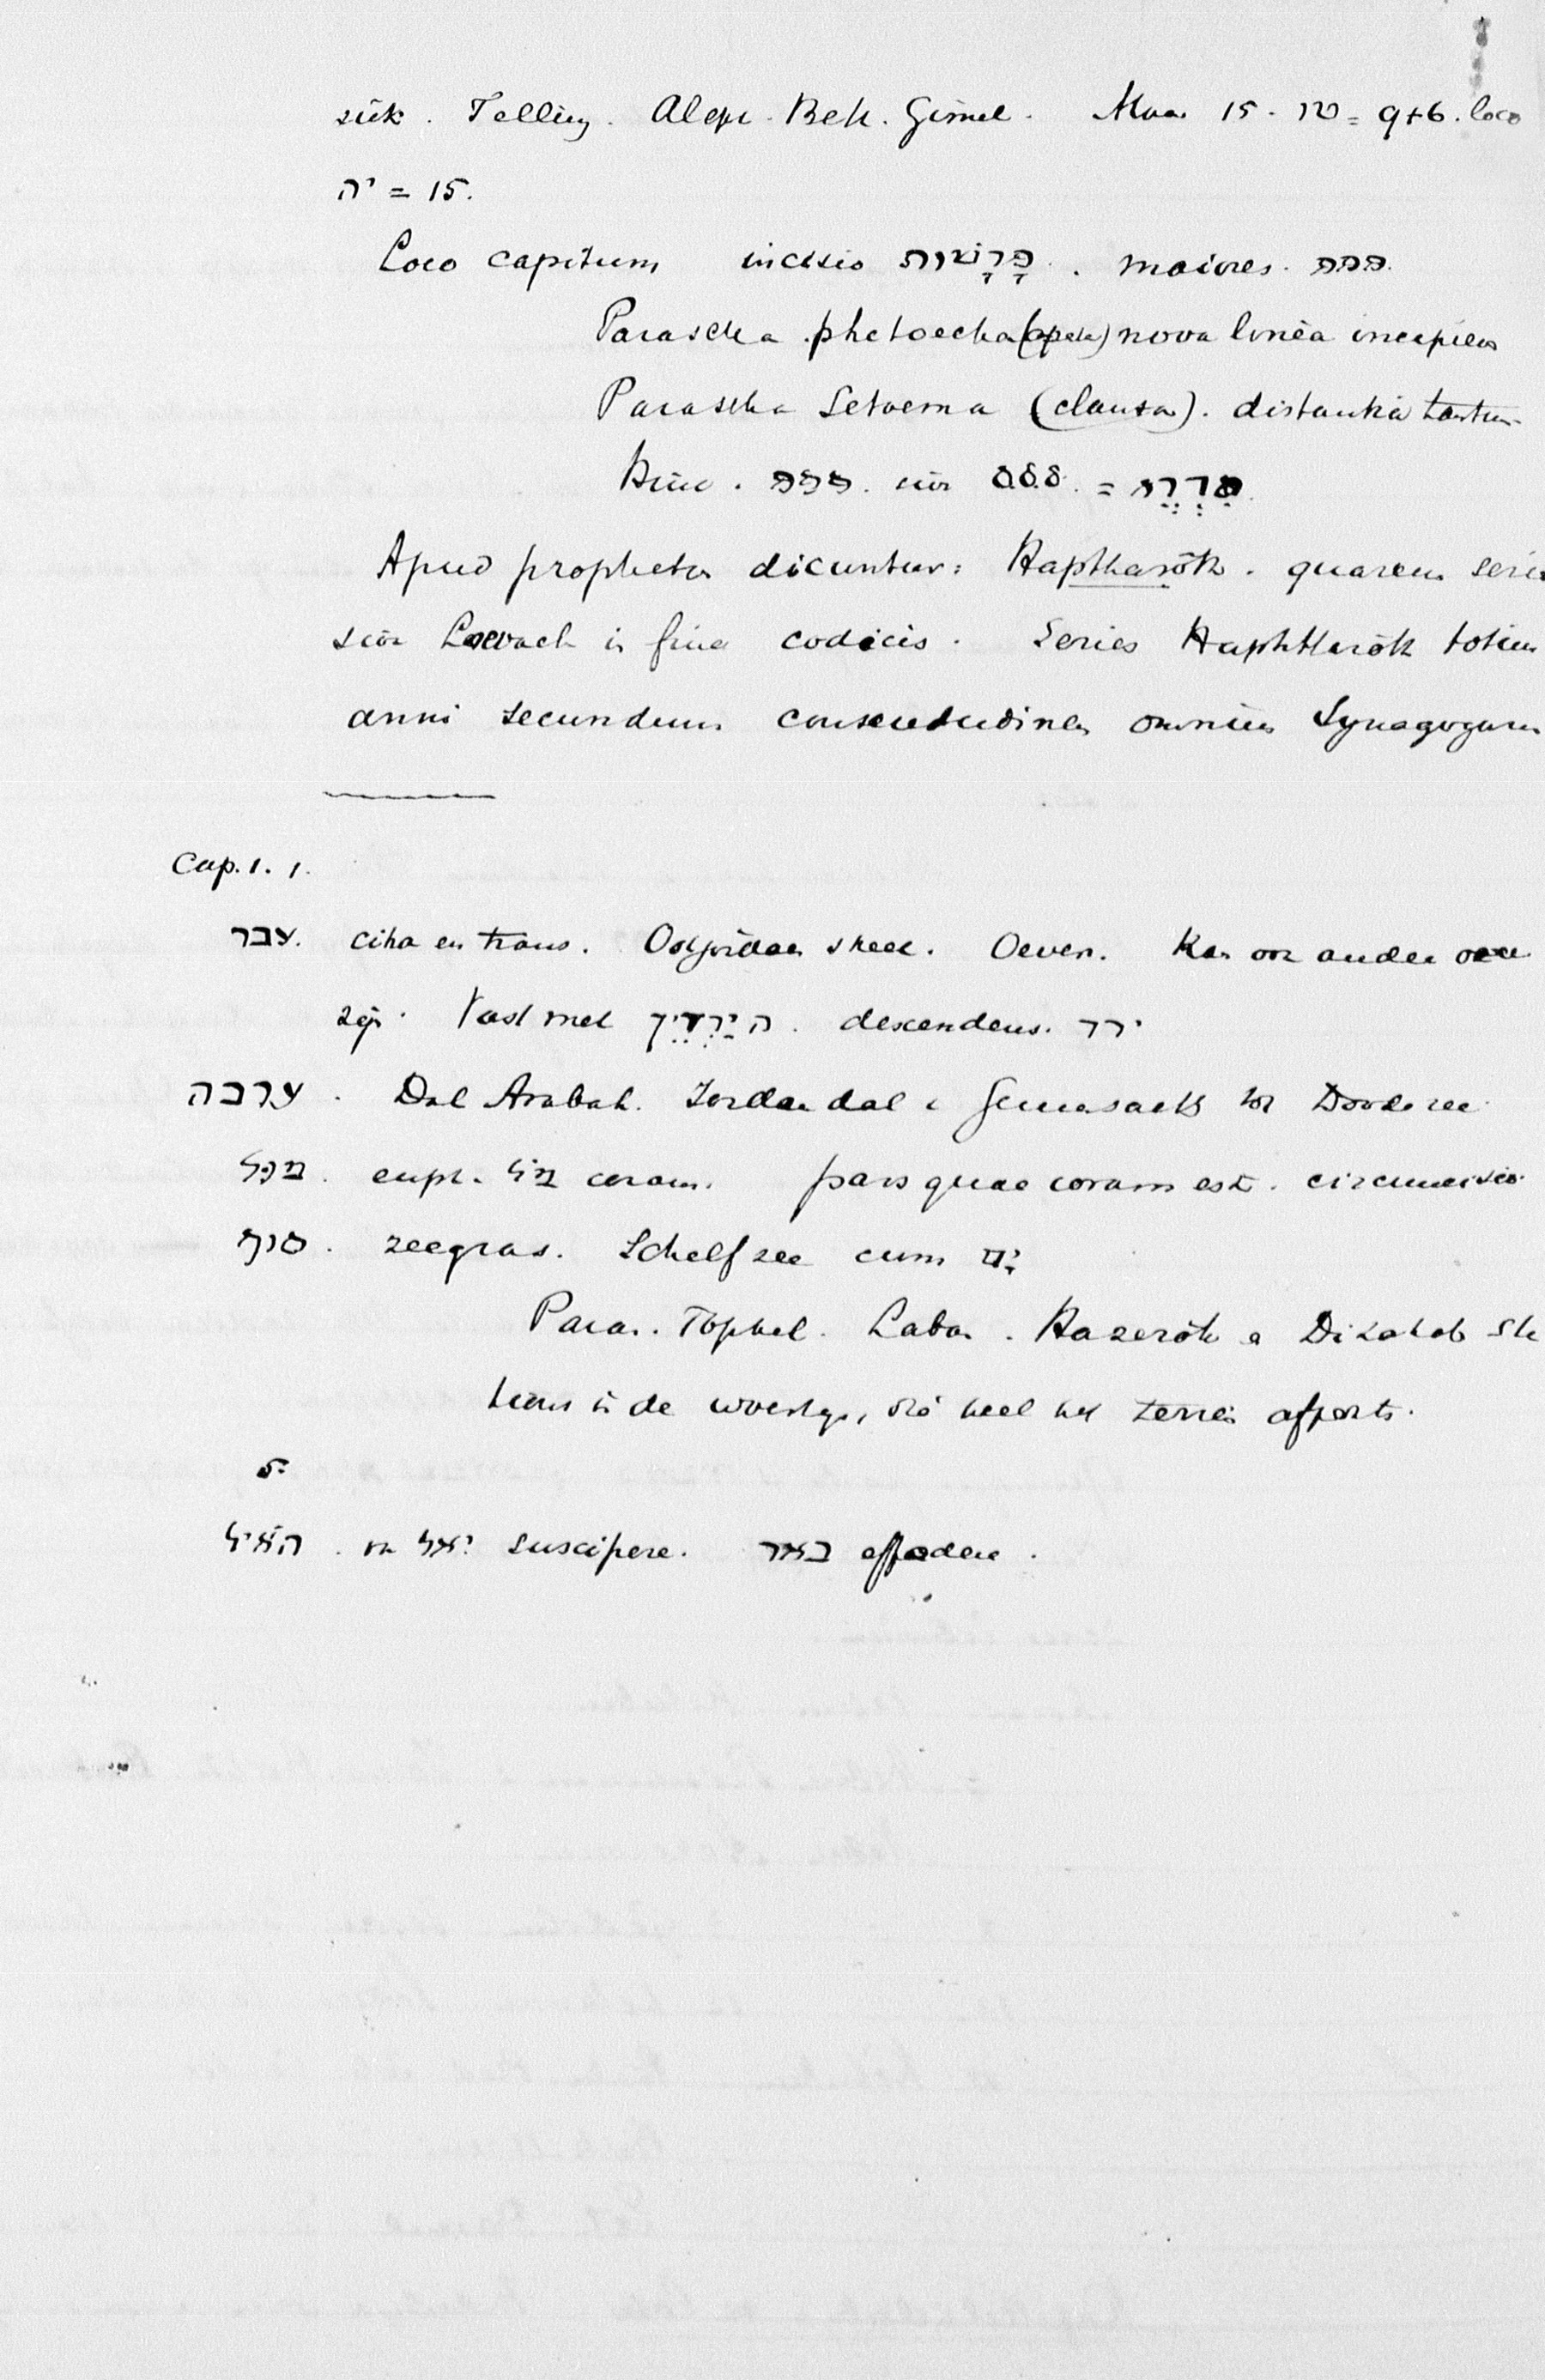 stuk. Telling. Aleph. Beth. Gimel. Maar 15. טו = 9+6. loco
יה = 15.
Loco capitum incisio פָּרָשׁוֹת. maiores. פפפ.
Parascha phetoecha (aperta) nova linea incipiens
Parascha Setoema (clausa). distantia tantum
Hinc. פפפ. ססס. = סדרת.
Apud prophetas dicuntur: Haphtharôth. quarum series
in fine codicis. Series Haphtharôth totius
anni secundum consuetudinem omnium Synagogarum
Cap. 1. 1.
עבר. citra en trans. Oostjordaan Oever. Kan ook andere oever
zijn. Vast met הירדין. descendens. ירד
ערבה. Dal Arabah. Jordaandal tot Doode zee.
מול. מול coram. pars quae coram est. circumcisio.
סוף. zeegras. Schelfzee cum יָם
Paran. Tophel. Laban. Hazerôth en Dizahab
in de woestijn, heel het terrein
5.
הואיל. יאל suscipere. באר effodere.